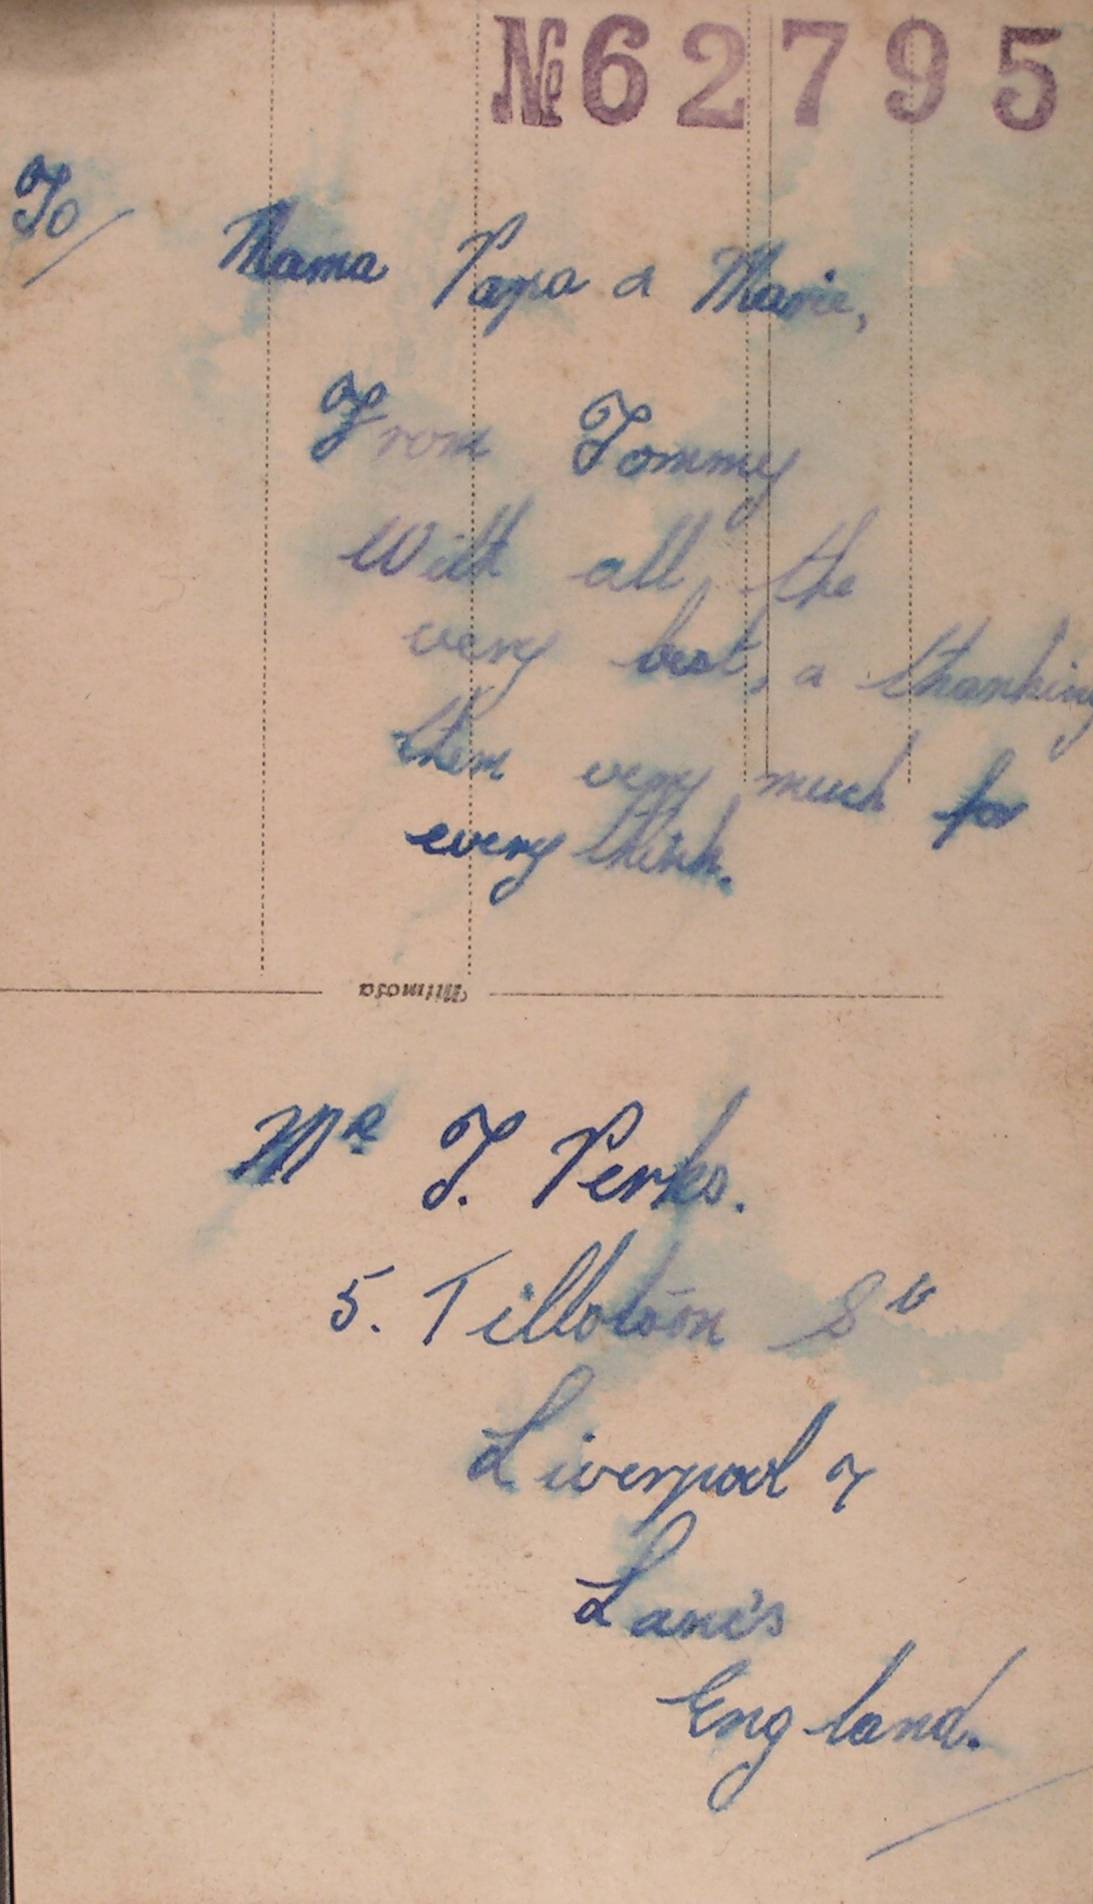 №62795
To/
Mama Papa & Marie,
From Tommy
With all, the
very best, & thanking
them very much for
every think.
Mr T. Perks.
5. Tillotson St
Liverpool 7
Lancs
England.